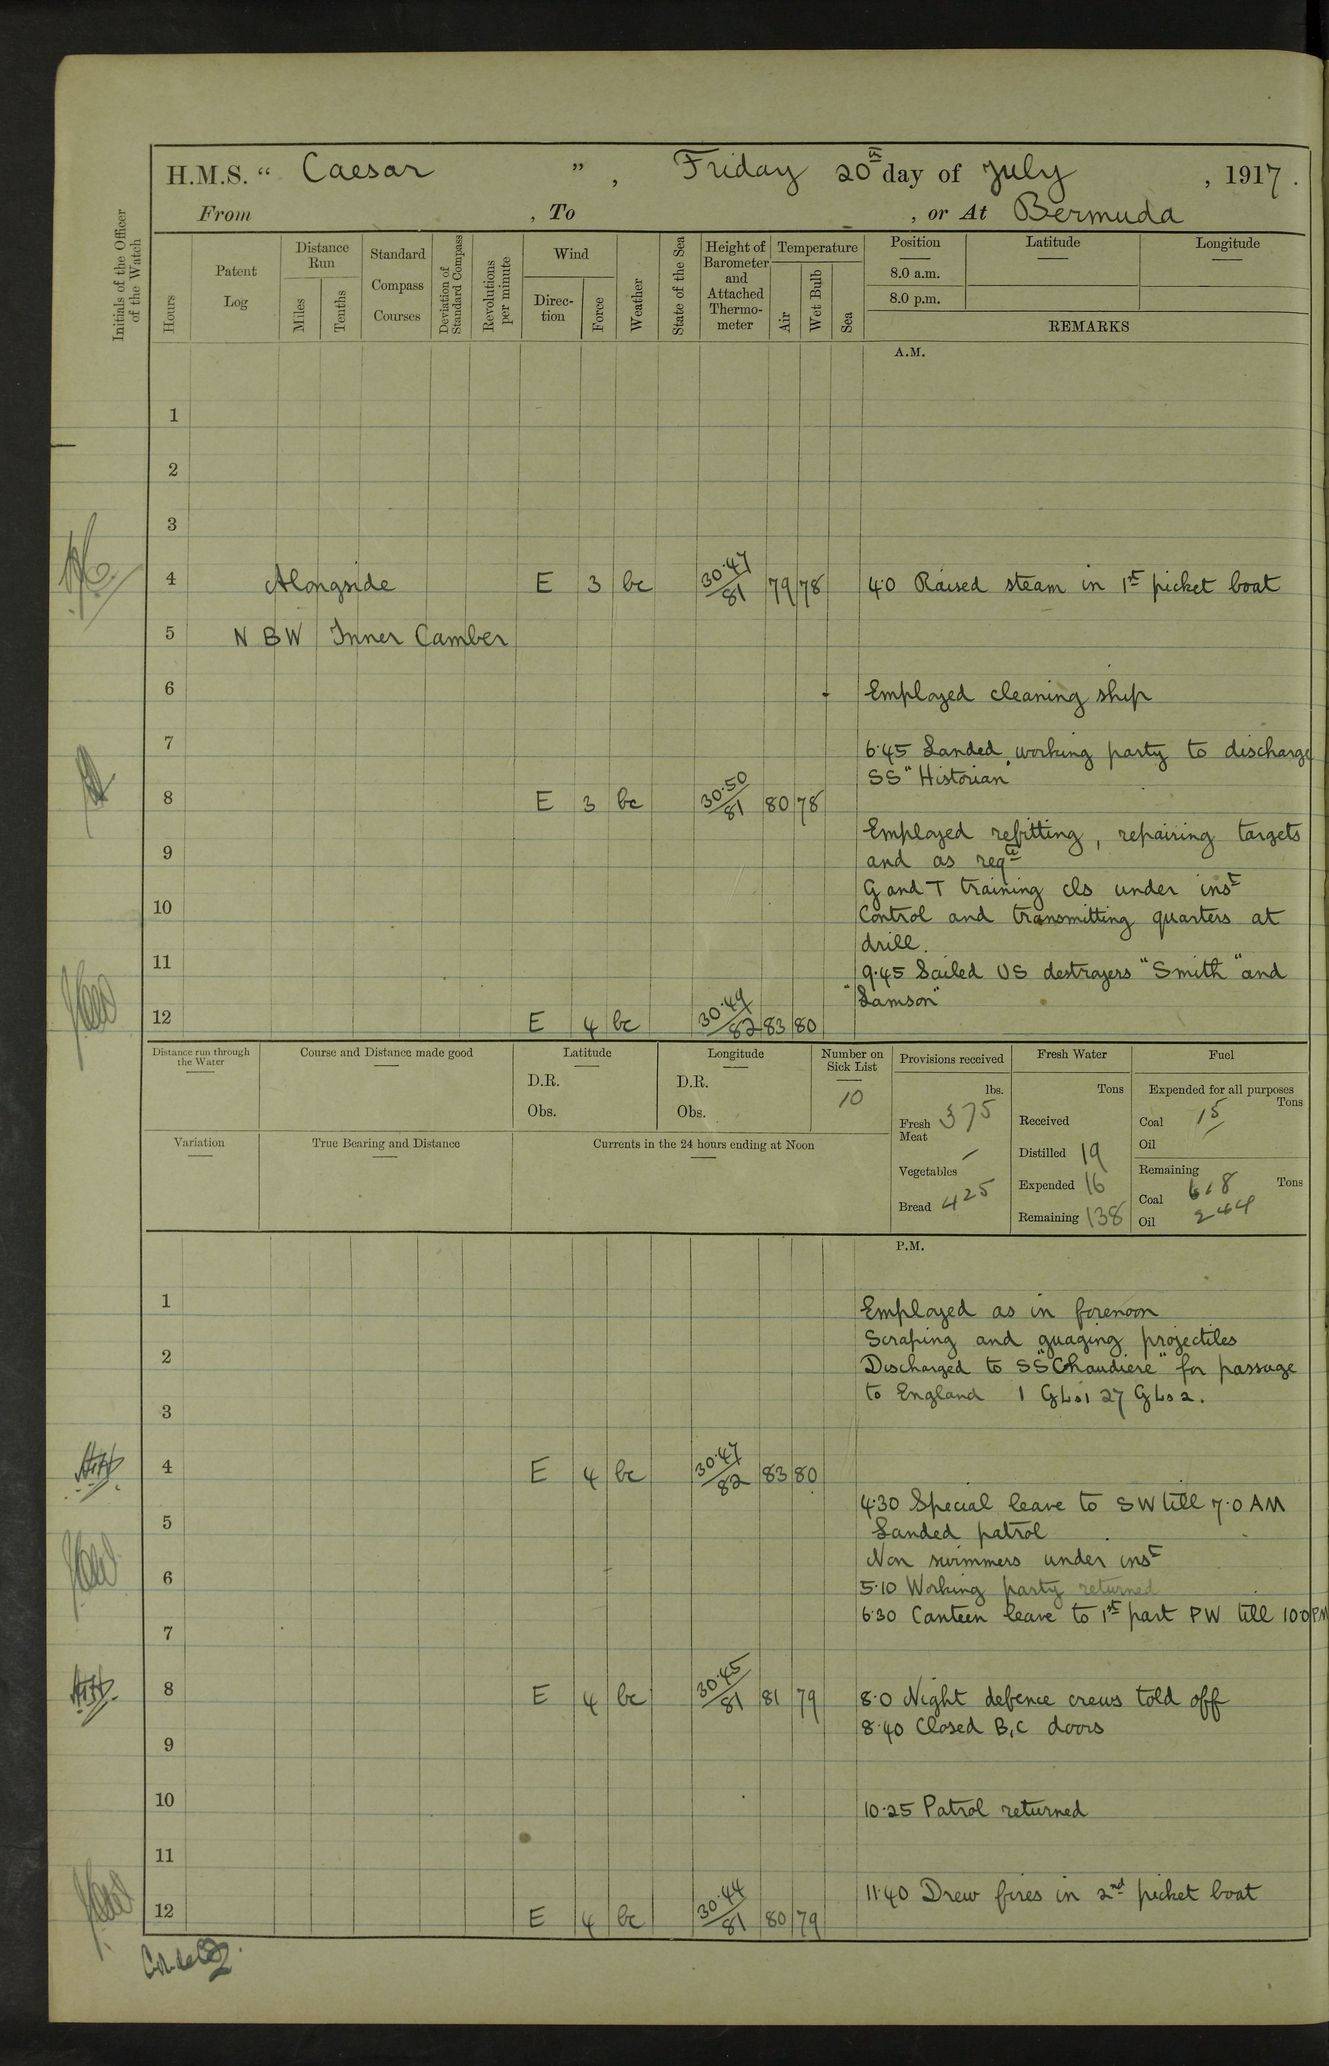 H.M.S. “ Caesar ” , Friday 20th day of July , 1917.
From , To , or At Bermuda
Initials of the Officer of the Watch
Hours
Patent Log
Distance Run
Miles
Tenths
Standard Compass Courses
Deviation of Standard Compass
Revolutions per minute
Wind
Direc-tion
Force
Weather
State of the Sea
Height of Barometer and Attached Thermo-meter
Temperature
Air
Wet Bulb
Sea
Position Latitude Longitude
8.0 a.m.
8.0 p.m.
REMARKS
A.M.
1
2
3
4 Alongside E 3 bc 30.47/81 79 78 4.0 Raised steam in 1st picket boat
5 N B W Inner Camber
6 Employed cleaning ship
7 6.45 Landed working party to discharge
SS "Historian"
8 E 3 bc 30.50/81 80 78
Employed refitting, repairing targets
9 and as reqte
G and T training cls under inst
10 Control and transmitting quarters at
drill.
11 9.45 Sailed US destroyers "Smith" and
"Lamson"
12 E 4 bc 30.49/82 83 80
Distance run through the Water
Course and Distance made good
Latitude
D.R.
Obs.
Longitude
D.R.
Obs.
Number on Sick List
10
Provisions received
lbs.
Fresh Meat 375
Vegetables –
Bread 425
Fresh Water
Tons
Received
Distilled 19
Expended 16
Remaining 138
Fuel
Expended for all purposes
Tons
Coal 15
Oil –
Remaining
Tons
Coal 618
Oil 244
Variation
True Bearing and Distance
Currents in the 24 hours ending at Noon
P.M.
1 Employed as in forenoon
Scraping and guaging projectiles
2 Discharged to SS "Chaudiere" for passage
to England 1 GLs1 27 GLs2.
3
4 E 4 bc 30.47/82 83 80
4.30 Special leave to SW till 7.0 AM
5 Landed patrol
Non swimmers under inst
6 5.10 Working party returned
6.30 Canteen leave to 1st part PW till 10.0 PM
7
8 E 4 bc 30.45/81 81 79 8.0 Night defence crews told off
8.40 Closed B,C doors
9
10 10.25 Patrol returned
11
11.40 Drew fires in 2nd picket boat
12 E 4 bc 30.44/81 80 79